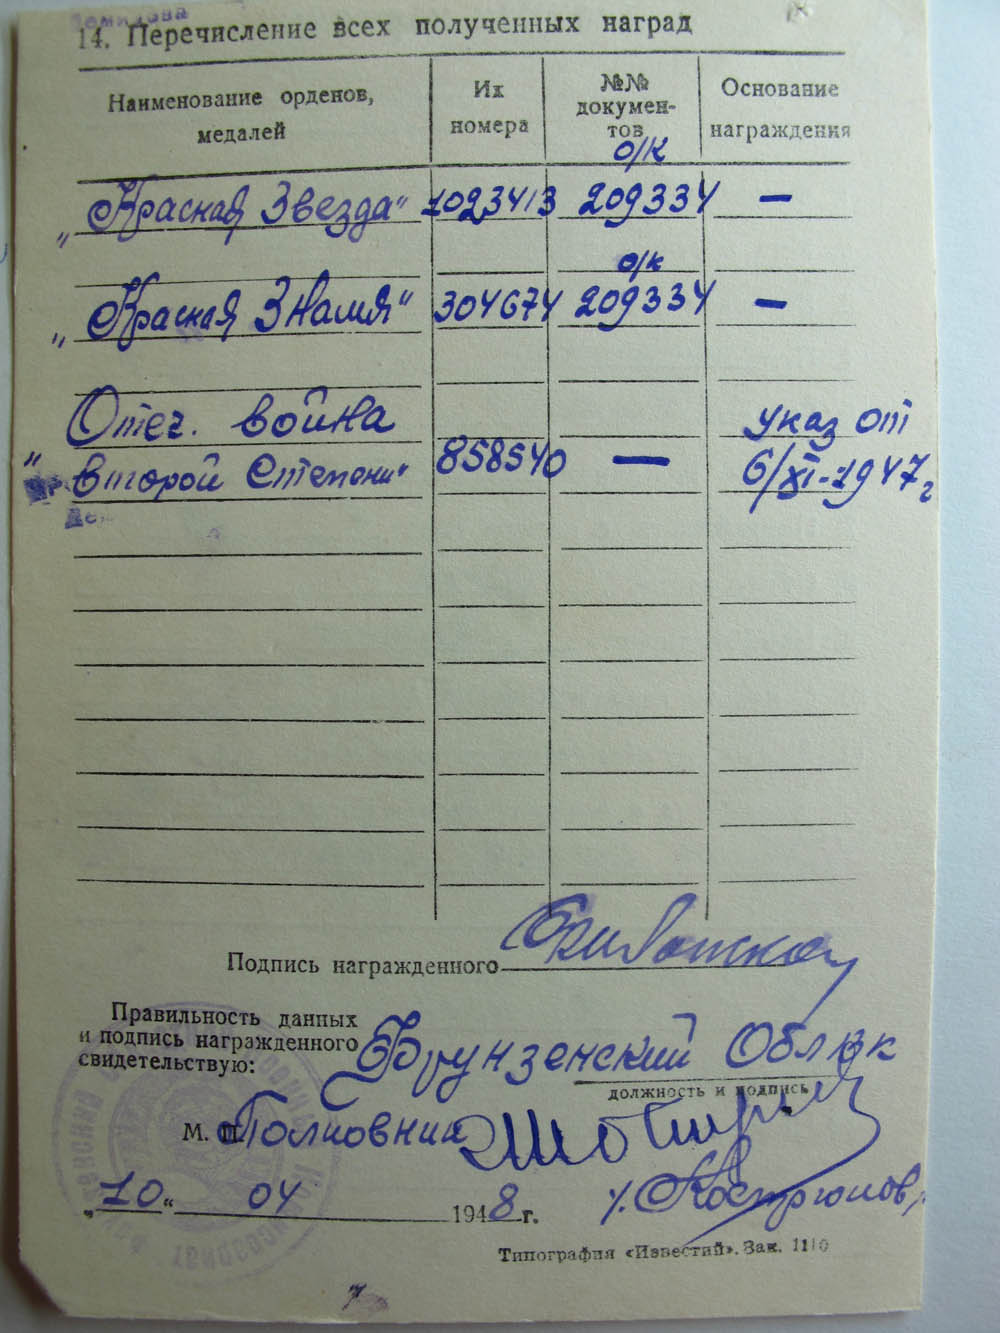 14. Перечисление всех полученных наград
Наименование орденов, медалей
Их номера
№№ документов
Основание награждения
о/к
„Красная Звезда" 1023413 209334 —
о/к
„Красная Знамя" 304674 209334 —
Отеч. война указ от
„второй Степени" 858540 — 6/XI-1947г
Подпись награжденного
Правильность данных
и подпись награжденного
свидетельствую:
Фрунзенский Облвк
должность и подпись
М. П. Полковник
„10" 04 1948 г.
Типография «Известий». Зак. 1110